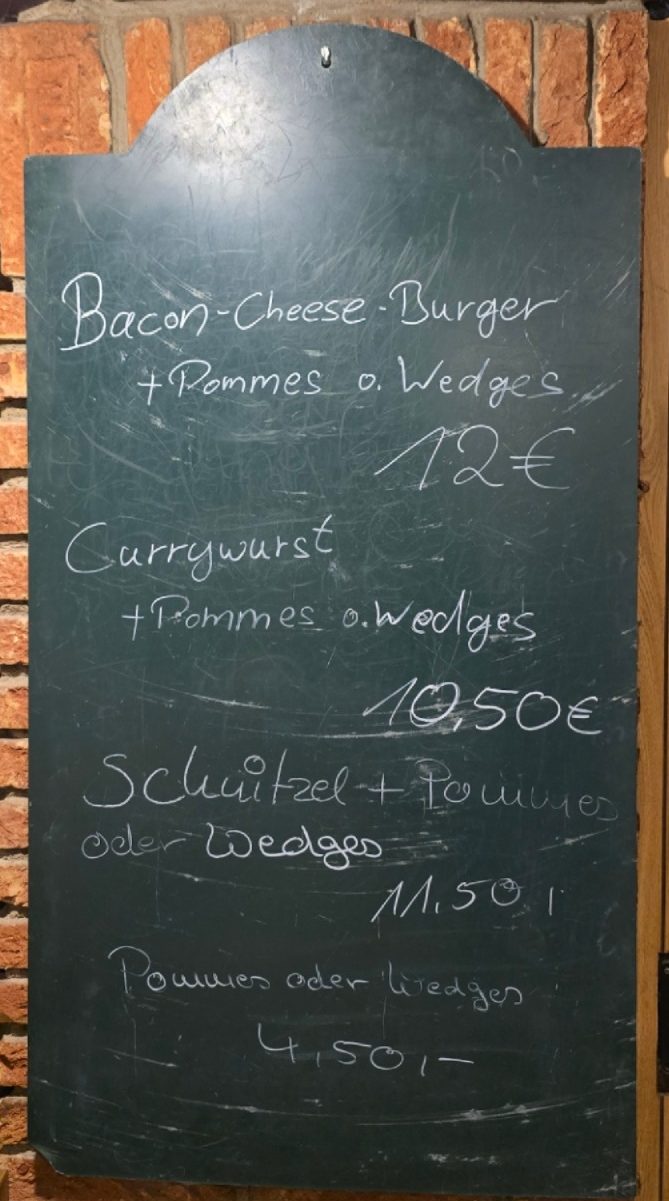 Bacon-Cheese-Burger
+Pommes o. Wedges
12€
Currywurst
+Pommes o. Wedges
10,50€
Schnitzel + Pommes
oder Wedges
11.50,
Pommes oder Wedges
4,50,-